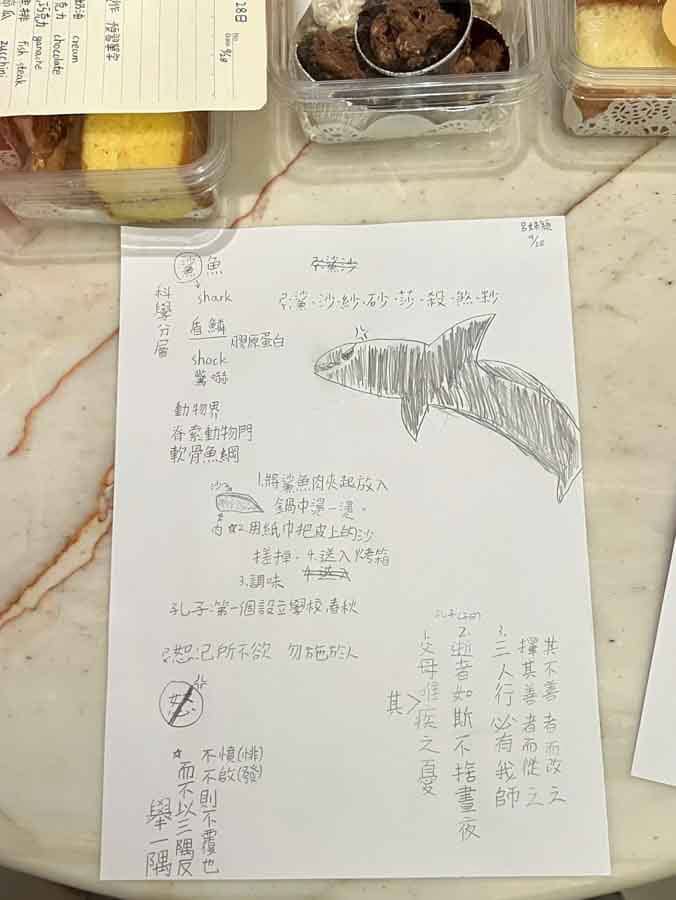 18日
No.
Date 9/18
作 預習單字
奶油 cream
巧克力 chocolate
巧克力 ganache
魚排 fish steak
zucchini
9/20
鯊魚
shark
科學分層
盾鱗
膠原蛋白
shock
驚嚇
動物界
脊索動物門
軟骨魚綱
鯊、沙、紗、砂、莎、殺、煞、粆
沙子
肉
1.將鯊魚肉夾起放入
鍋中燙一燙。
☆2.用紙巾把皮上的沙
搓掉。4.送入烤箱
3.調味
孔子:第一個設立學校,春秋
恕:己所不欲 勿施於人
怒
1.父母唯其疾之憂
2.逝者如斯不捨晝夜
3.三人行必有我師
擇其善者而從之
其不善者而改之
☆不憤(悱)
不啟(發)
則不覆也
而不以三隅反
舉一隅